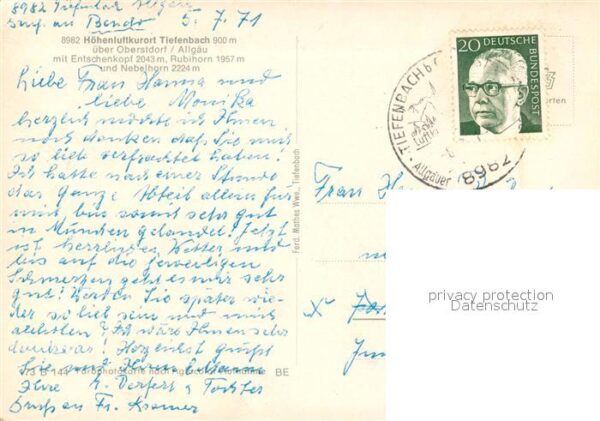 8982 Tiefenbach
Gruß an Bendo 5.7.71
8982 Höhenluftkurort Tiefenbach 900 m
über Oberstdorf / Allgäu
mit Entschenkopf 2043 m, Rubihorn 1957 m
und Nebelhorn 2224 m
Liebe Frau Hanna und
liebe Monika
herzlich möchte ich Ihnen
noch danken daß Sie mich
so lieb verfrachtet haben!
Ich hatte nach einer Stunde
das ganze Abteil allein für
mich bin somit sehr gut
in München gelandet! Jetzt
ist herrliches Wetter und
bis auf die jeweiligen
Schmerzen geht es mir sehr
gut! Werden Sie später wie-
der so lieb sein und mich
abholen? Ich wäre Ihnen sehr
dankbar! Herzlichst grüßt
Sie und Ihren
Ihre K. Tochter
Gruß an Fr. Kramer
473 B 144 BE
Ferd. Mathes Wwe., Tiefenbach
20 DEUTSCHE
BUNDESPOST
TIEFENBACH b
Allgäuer
8982
Frau
privacy protection
Datenschutz